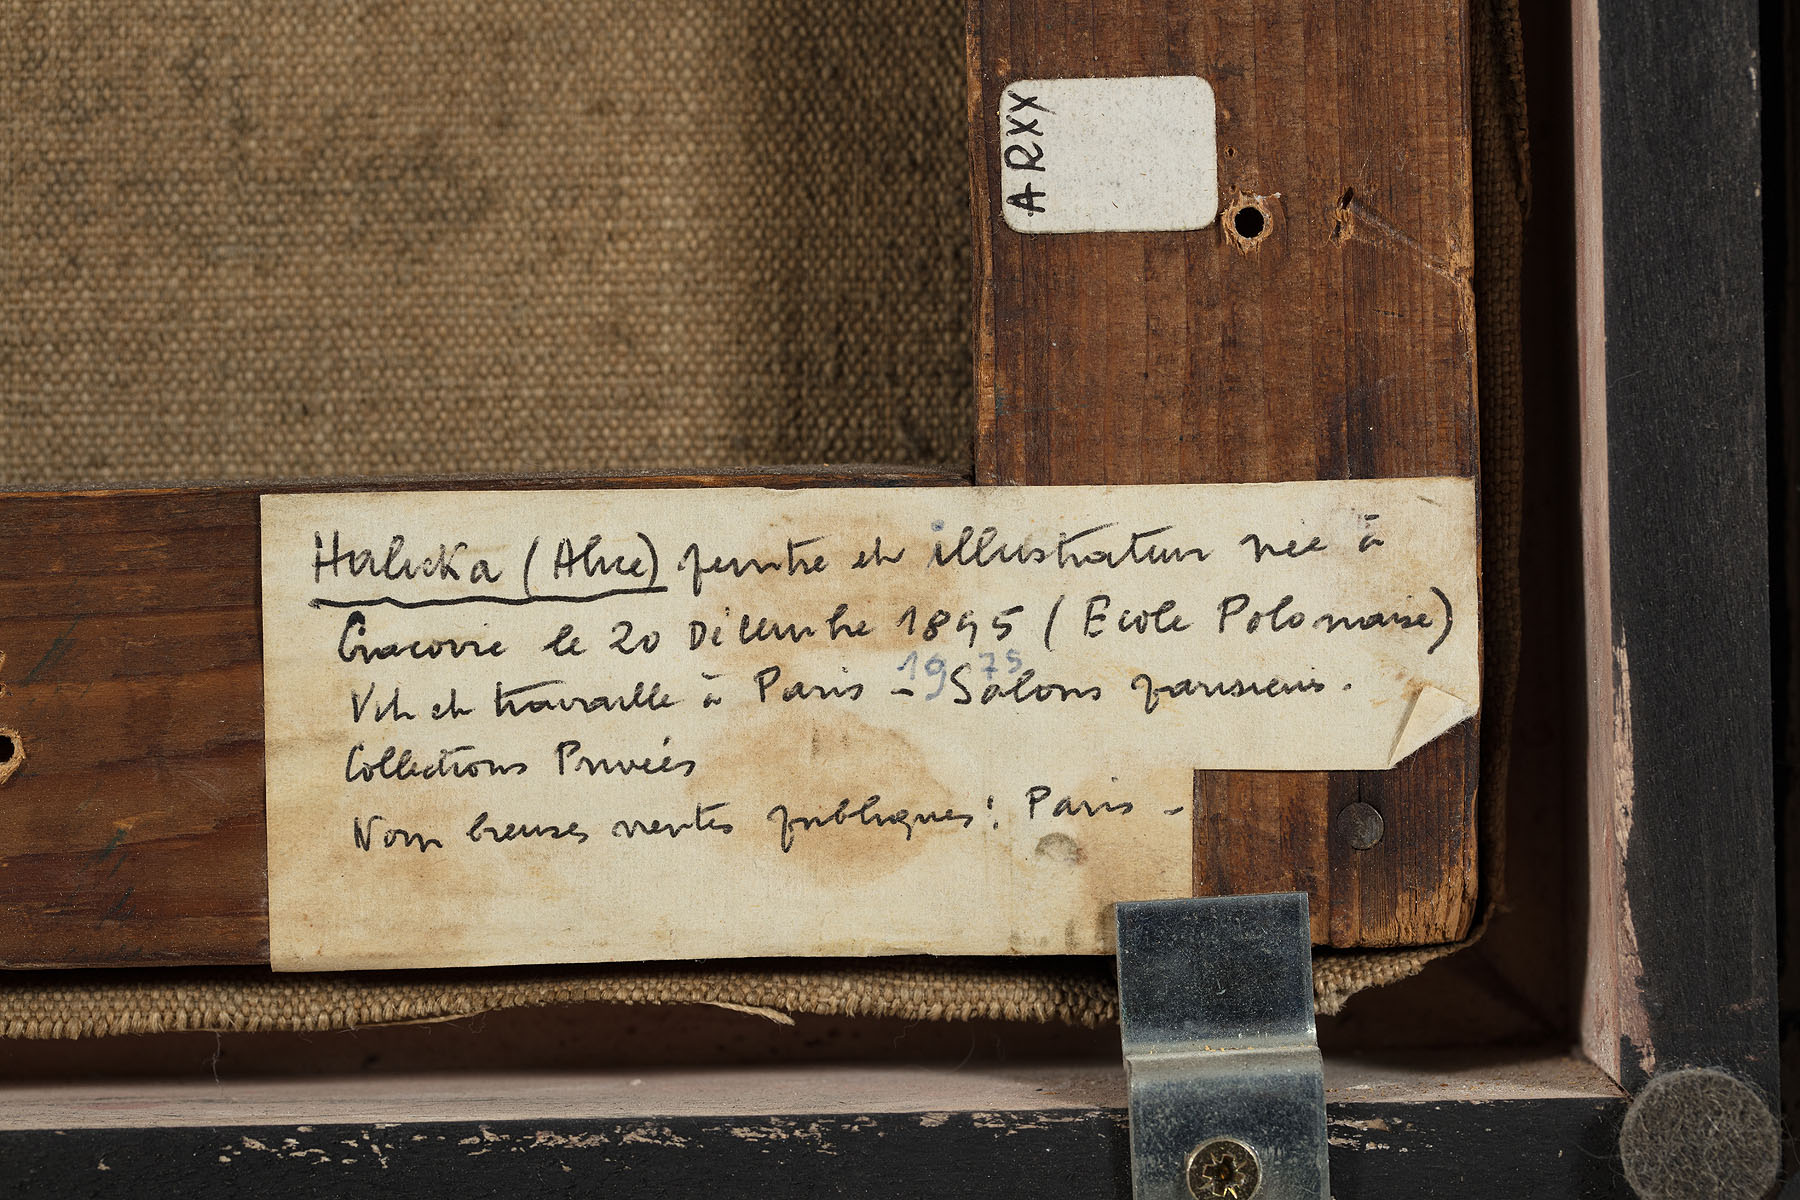 ARXX
Halicka (Alice) peintre et illustrateur née à
Cracovie le 20 Décembre 1895 (Ecole Polonaise)
1975
Vit et travaille à Paris - Salons parisiens.
Collections Privées
Nombreuses ventes publiques : Paris -